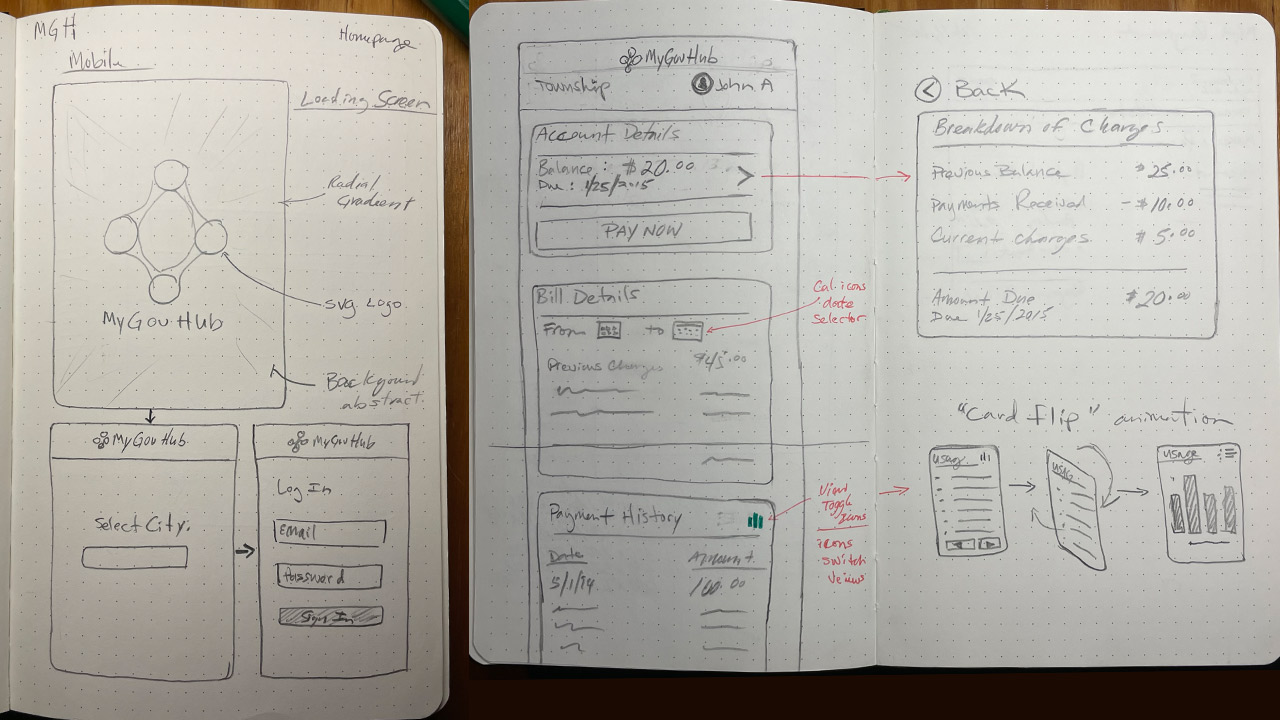 MGH
Homepage
Mobile
Loading Screen
Radial
Gradient
SVG Logo
MyGovHub
Background
abstract.
MyGovHub
Select City.
MyGovHub
Log In
Email
Password
Sign In
MyGovHub
Township
John A
Account Details
Balance : $20.00
Due : 1/25/2015
>
PAY NOW
Bill Details
From to
Cal. icons
date
selector
Previous Charges $45.00
Payment History
View
Toggle
Icons
icons
switch
views
Date Amount
5/1/14 100.00
< Back
Breakdown of Charges
Previous Balance $25.00
Payments Received - $10.00
Current Charges $5.00
Amount Due $20.00
Due 1/25/2015
"Card Flip" animation
Usage
Usage
Usage